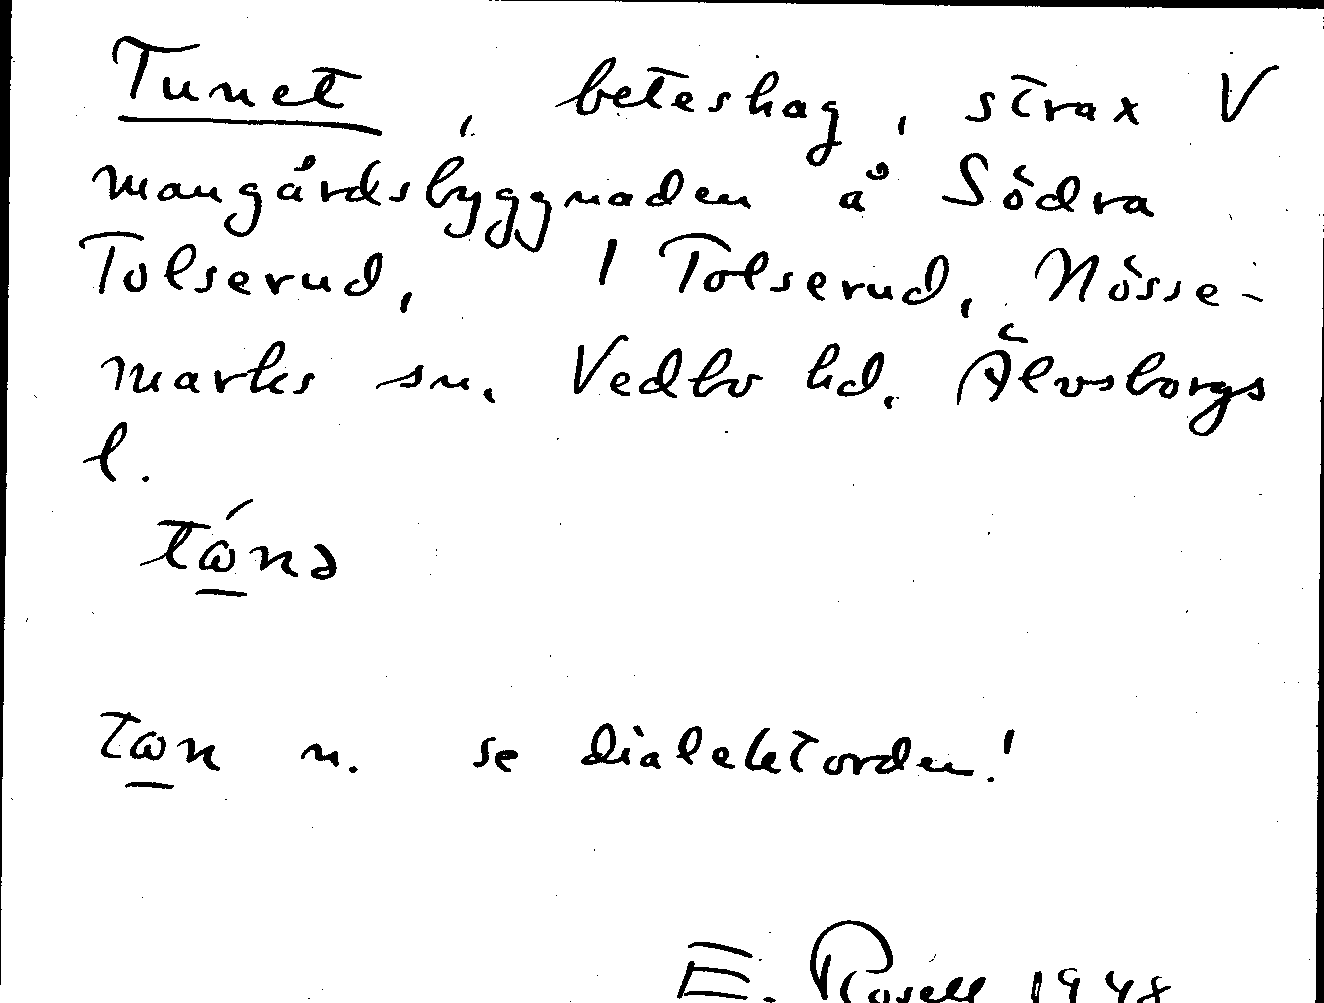 Tunet, beteshag, strax V
mangårdsbyggnaden å Södra
Tolserud, 1 Tolserud, Nösse-
marks sn. Vedbo hd. Älvsborgs
l.
tɷ́nə
tɷn n. se dialektorden!
E. Rosell 1948